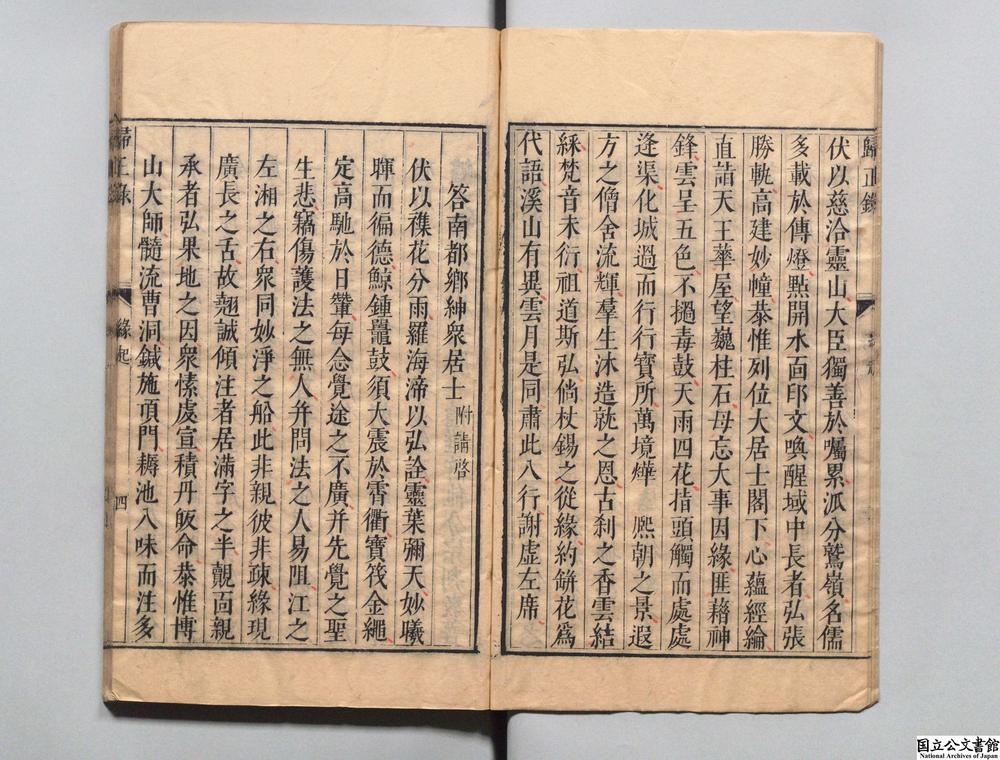 歸正錄
伏以慈洽靈山大臣獨善於囑累派分鷲嶺名儒
多載於傳燈㸃開水面印文喚醒域中長者弘張
勝軌高建妙幢恭惟列位大居士閣下心蘊經綸
直諳天王華屋望巍柱石毋忘大事因緣匪藉神
鋒雲呈五色不撾毒鼓天雨四花指頭觸而處處
逢渠化城過而行行寶所萬境燁　熙朝之景遐
方之僧舍流輝羣生沐造就之恩古刹之香雲結
綵梵音未衍祖道斯弘倘杖錫之從緣約缾花爲
代語溪山有異雲月是同肅此八行謝虛左席
答南都鄉紳衆居士 附請啓
伏以襍花分雨羅海渧以弘詮靈葉彌天妙曦
暉而徧德鯨鍾鼉鼓須大震於霄衢寶筏金繩
定高馳於日轝每念覺途之不廣并先覺之聖
生悲竊傷護法之無人弁問法之人易阻江之
左湘之右衆同妙淨之船此非親彼非疎緣現
廣長之舌故翹誠傾注者居滿字之半覿面親
承者弘果地之因衆愫處宣積丹皈命恭惟博
山大師髓流曹洞鍼施頂門耨池八味而注多
歸正錄
緣起
四
国立公文書館
National Archives of Japan